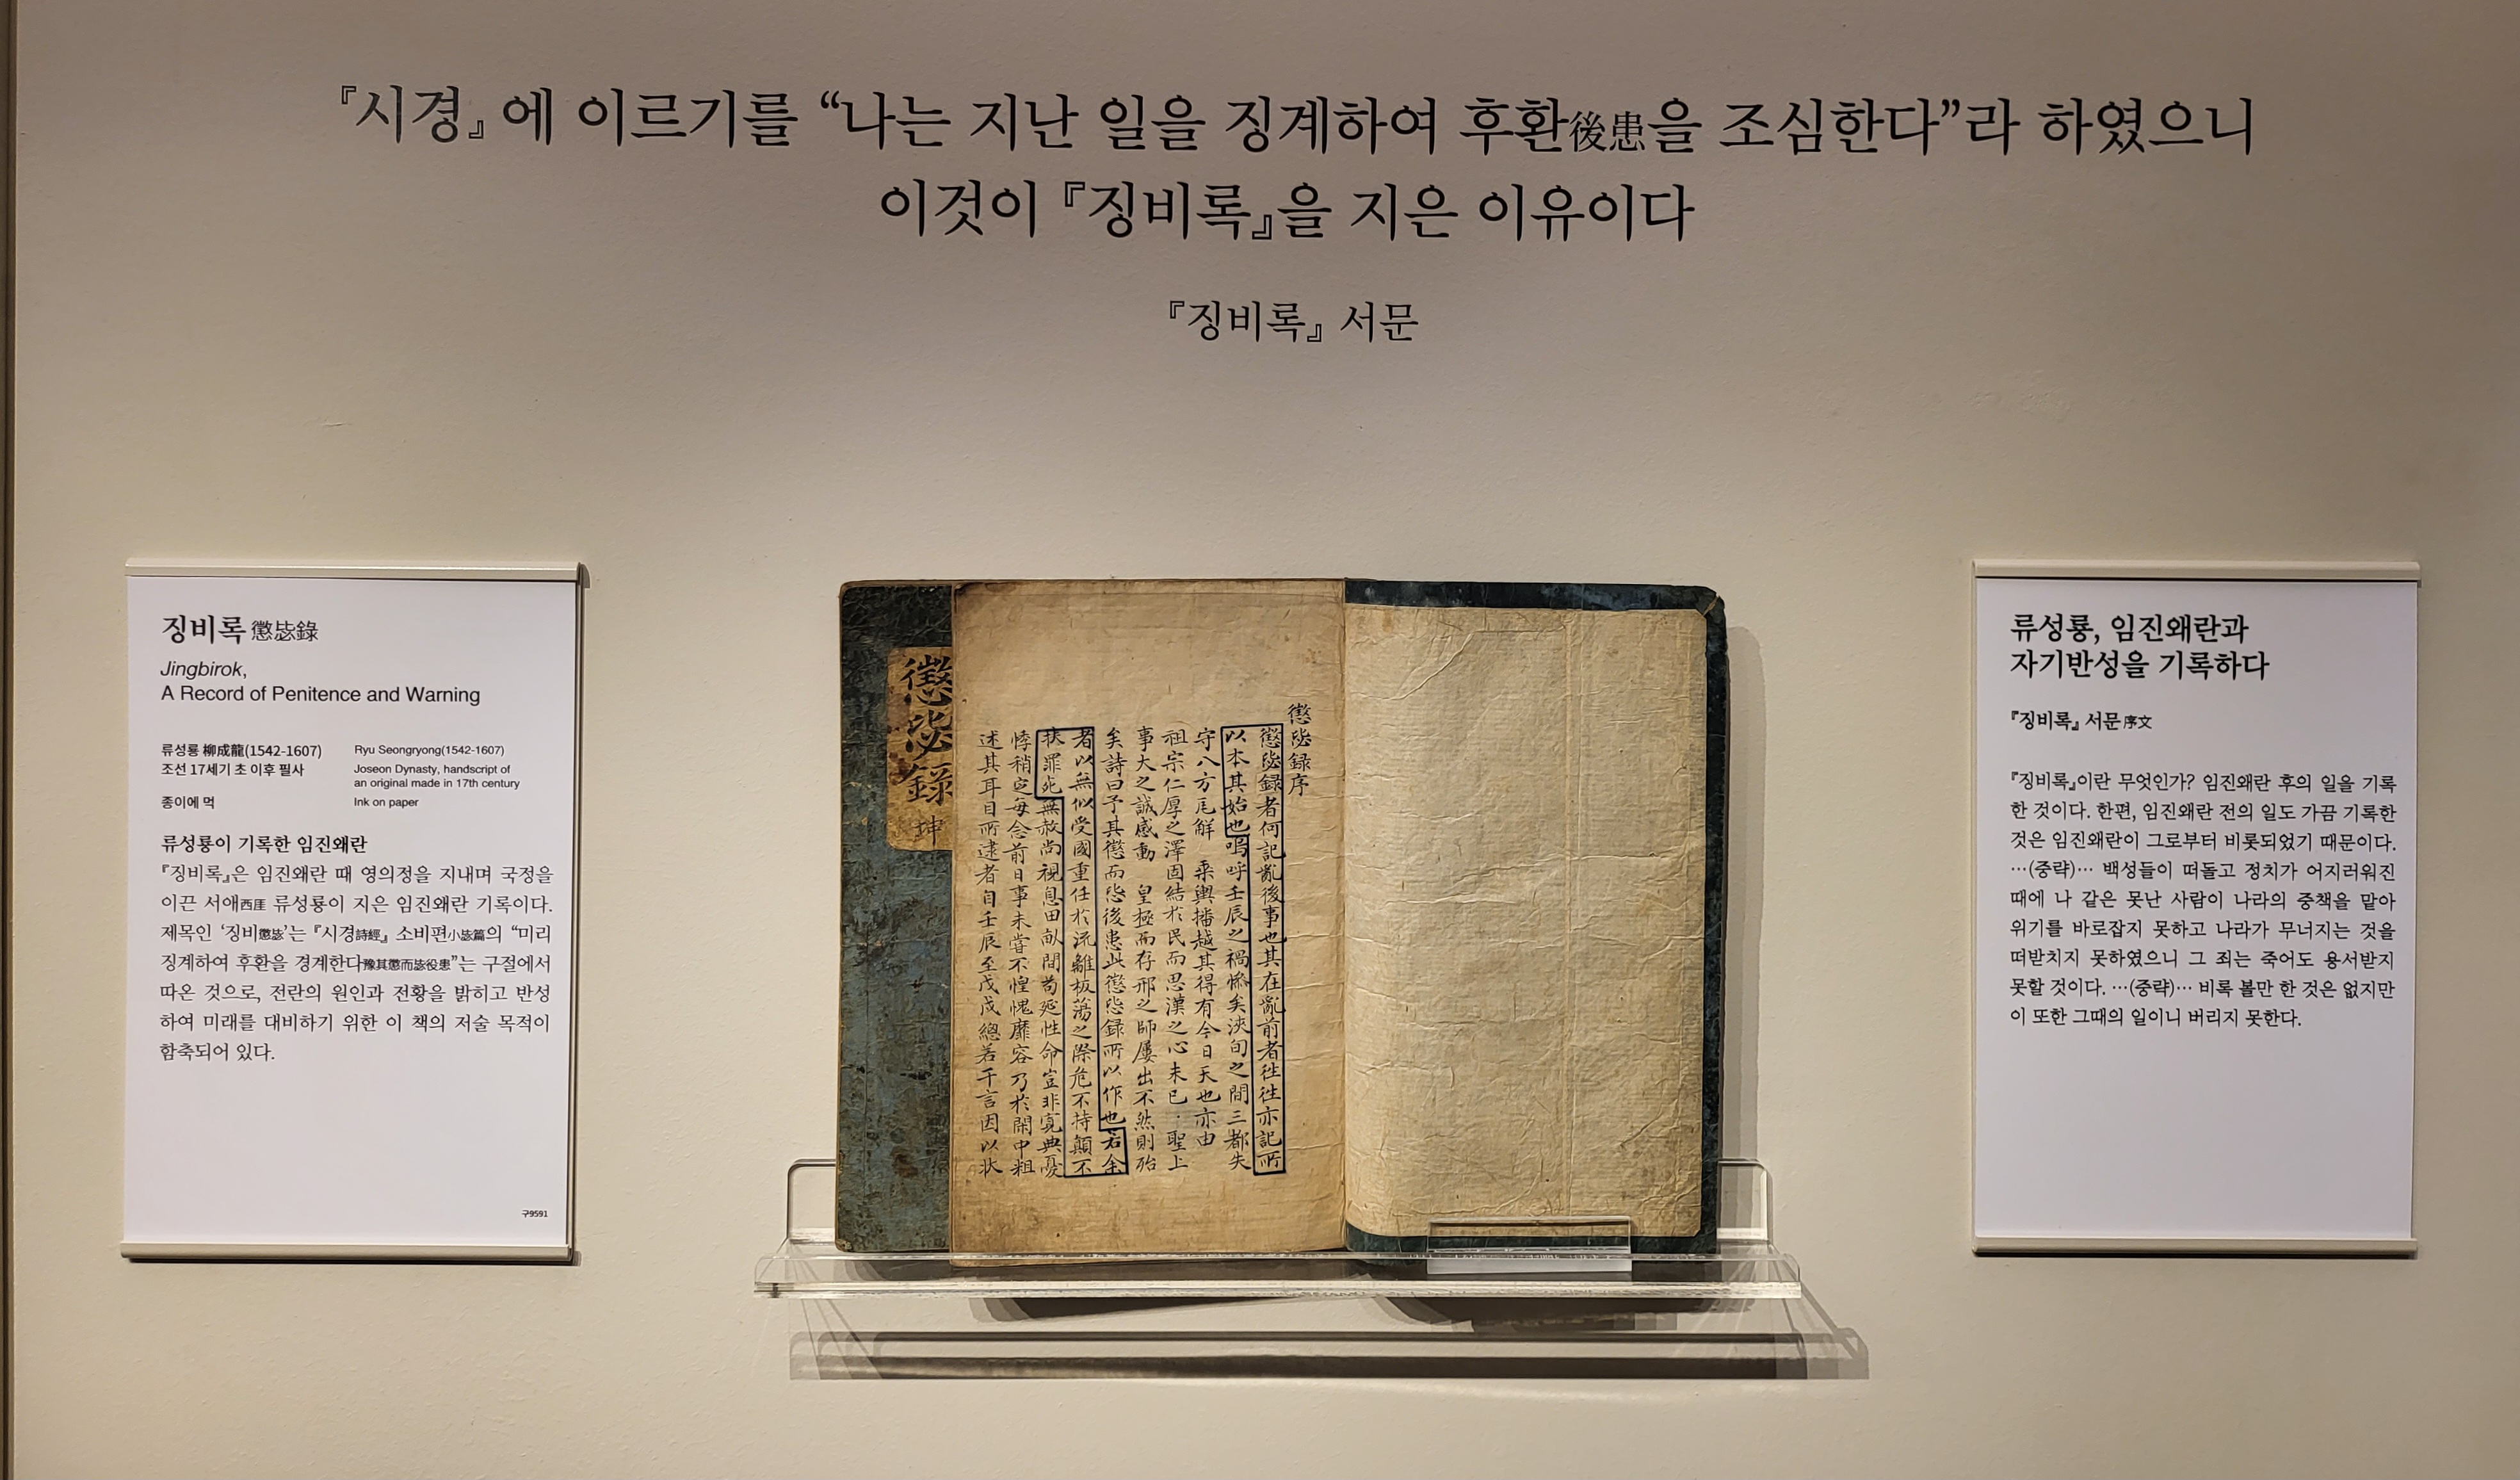 『시경』에 이르기를 “나는 지난 일을 징계하여 후환後患을 조심한다”라 하였으니
이것이 『징비록』을 지은 이유이다
『징비록』 서문
징비록 懲毖錄
Jingbirok,
A Record of Penitence and Warning
류성룡 柳成龍(1542-1607)
조선 17세기 초 이후 필사
종이에 먹
Ryu Seongryong(1542-1607)
Joseon Dynasty, handscript of
an original made in 17th century
Ink on paper
류성룡이 기록한 임진왜란
『징비록』은 임진왜란 때 영의정을 지내며 국정을
이끈 서애西厓 류성룡이 지은 임진왜란 기록이다.
제목인 ‘징비懲毖’는 『시경詩經』 소비편小毖篇의 “미리
징계하여 후환을 경계한다豫其懲而毖役患”는 구절에서
따온 것으로, 전란의 원인과 전황을 밝히고 반성
하여 미래를 대비하기 위한 이 책의 저술 목적이
함축되어 있다.
구9591
懲毖録序
懲毖録者何記亂後事也其在亂前者徃徃亦記所
以本其始也嗚呼壬辰之禍慘矣浹旬之間三都失
守八方瓦解 乘輿播越其得有今日天也亦由
祖宗仁厚之澤固結於民而思漢之心未已 聖上
事大之誠感動 皇極而存邢之師屢出不然則殆
矣詩曰予其懲而毖後患此懲毖録所以作也若余
者以無似受國重任於流離板蕩之際危不持顚不
扶罪死無赦尚視息田畝間苟延性命豈非寬典憂
悸稍定每念前日事未嘗不惶愧靡容乃於閑中粗
述其耳目所逮者自壬辰至戊戌總若干言因以狀
懲毖錄 坤
류성룡, 임진왜란과
자기반성을 기록하다
『징비록』 서문序文
『징비록』이란 무엇인가? 임진왜란 후의 일을 기록
한 것이다. 한편, 임진왜란 전의 일도 가끔 기록한
것은 임진왜란이 그로부터 비롯되었기 때문이다.
…(중략)… 백성들이 떠돌고 정치가 어지러워진
때에 나 같은 못난 사람이 나라의 중책을 맡아
위기를 바로잡지 못하고 나라가 무너지는 것을
떠받치지 못하였으니 그 죄는 죽어도 용서받지
못할 것이다. …(중략)… 비록 볼만 한 것은 없지만
이 또한 그때의 일이니 버리지 못한다.